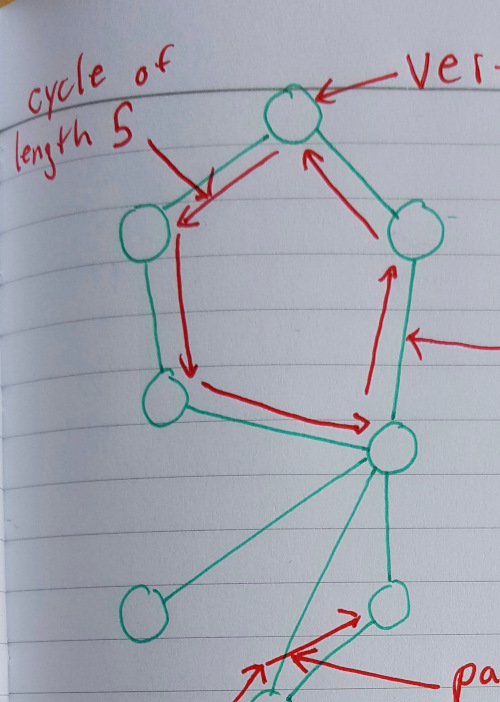 cycle of
length 5
ver-
pa